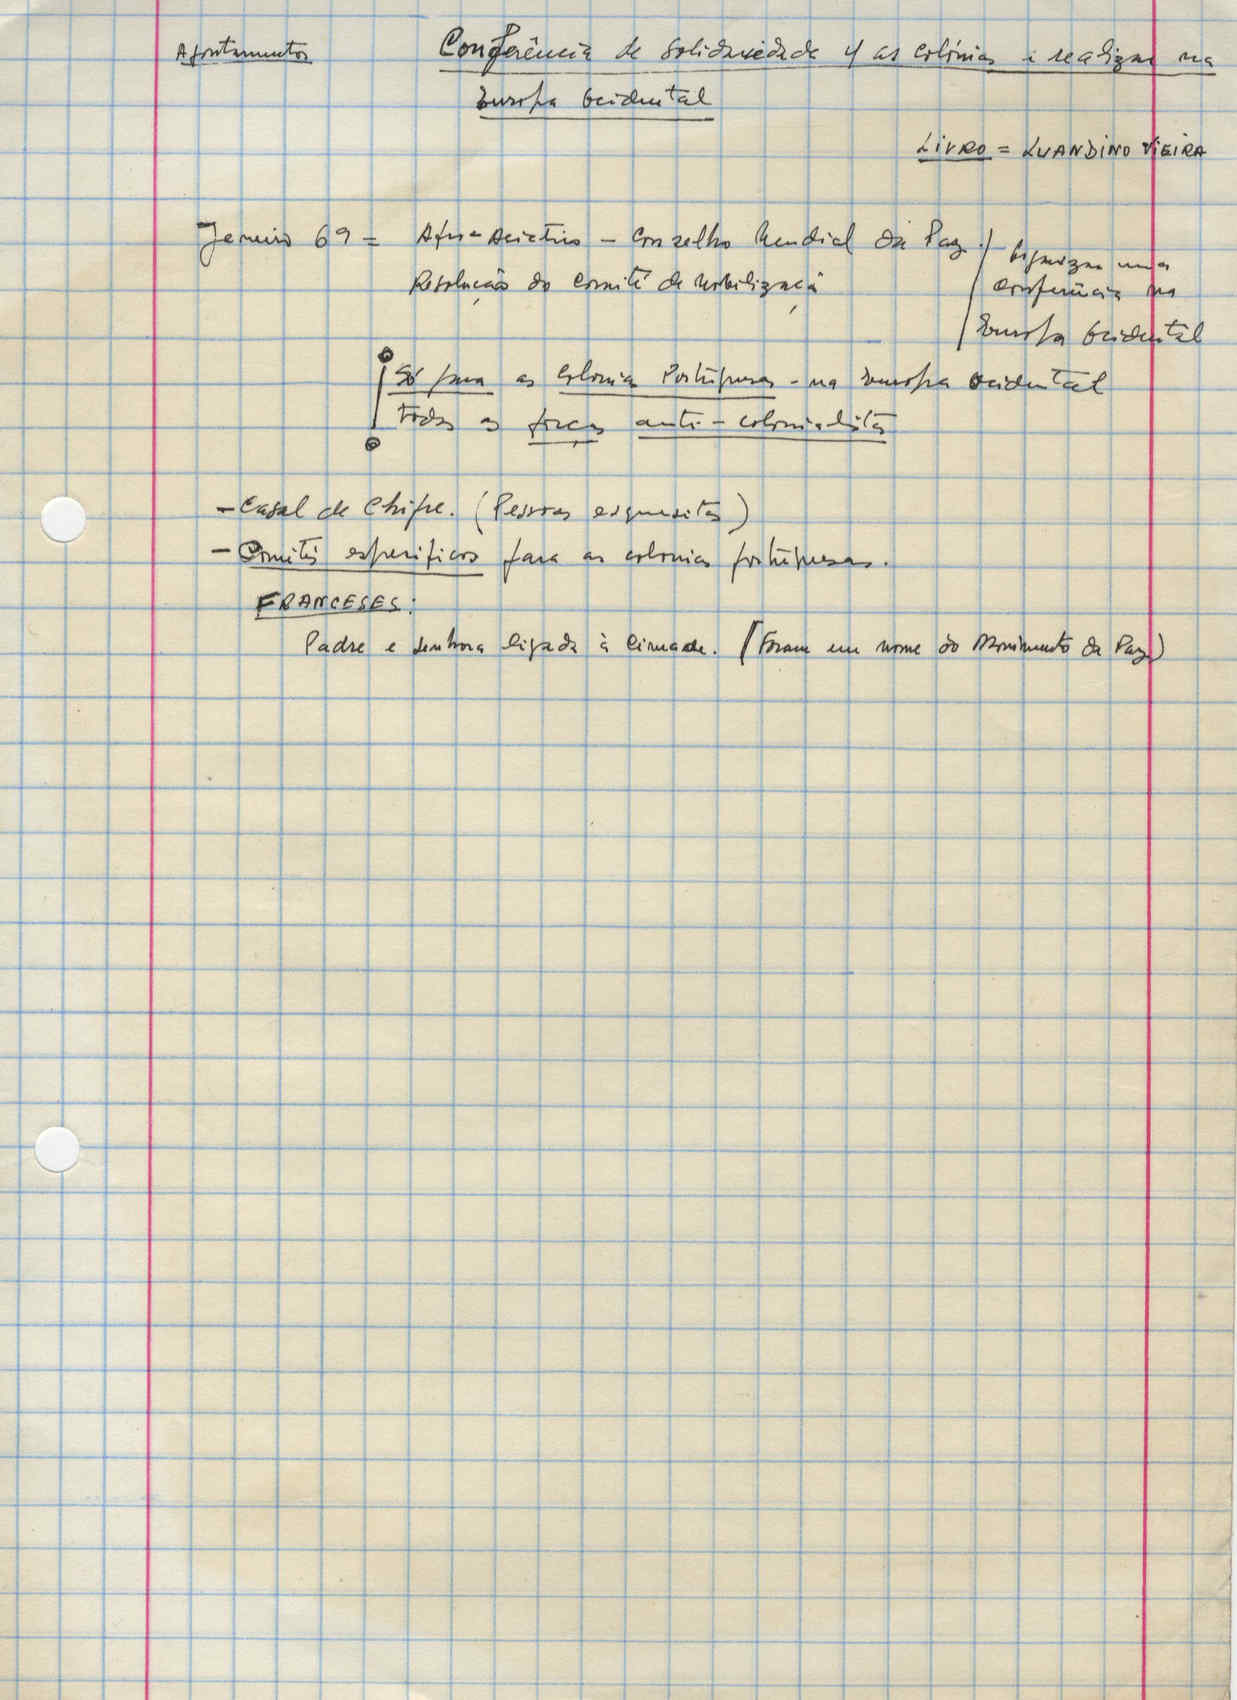 Apontamentos
Conferência de Solidariedade c/ as colónias a realizar na
Europa Ocidental
LIVRO = LUANDINO VIEIRA
Janeiro 69 = Afro-Asiático - Conselho Mundial da Paz
Resolução do Comité de Mobilização
Organizar uma
conferência na
Europa Ocidental
Só para as colonias Portuguesas - na Europa Ocidental
todas as forças anti-colonialistas
- Casal de Chipre. (Pessoas esquisitas)
- Comités especificos para as colonias portuguesas.
FRANCESES:
Padre e senhora ligada à Cimade. (Foram em nome do Movimento da Paz)